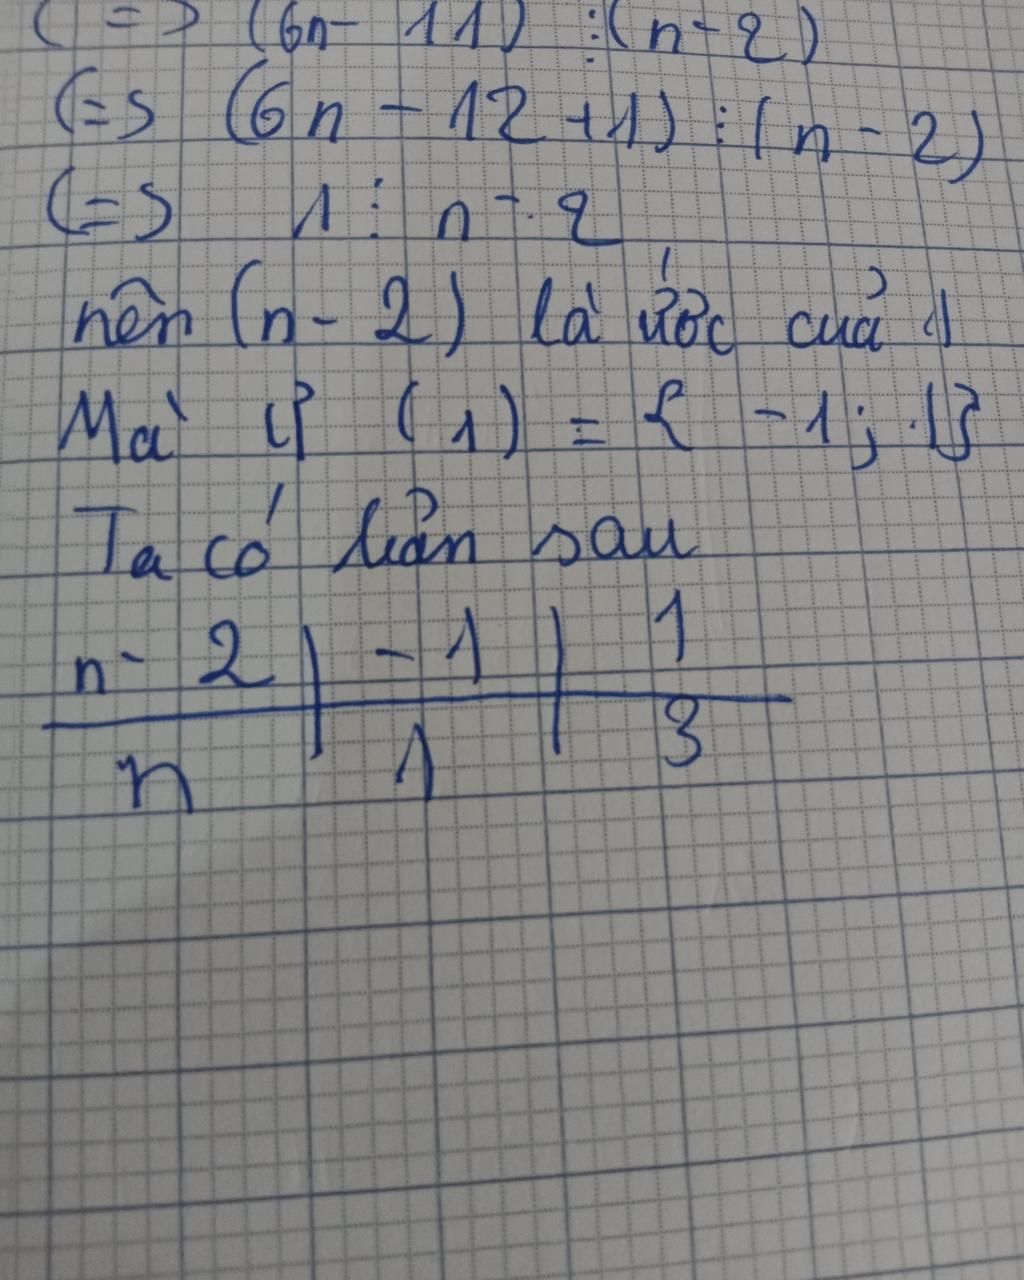 (=> (6n - 11) ⋮ (n - 2)
(=> (6n - 12 + 1) ⋮ (n - 2)
(=> 1 ⋮ n - 2
nên (n - 2) là ước của 1
Mà Ư (1) = { -1; 1}
Ta có bản sau
n - 2 | -1 | 1
n | 1 | 3